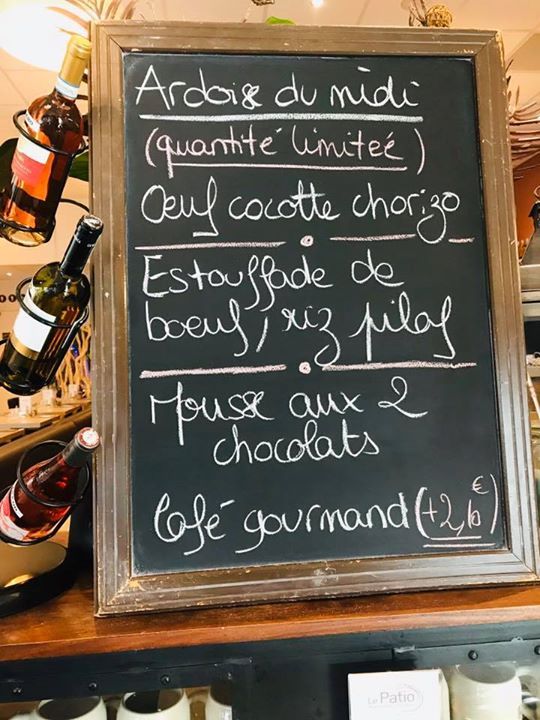 Ardoise du midi
(quantité limiteé)
Œuf cocotte chorizo
Estouffade de
boeuf, riz pilaf
Mousse aux 2
chocolats
Café gourmand (+2,10 €)
Le Patio